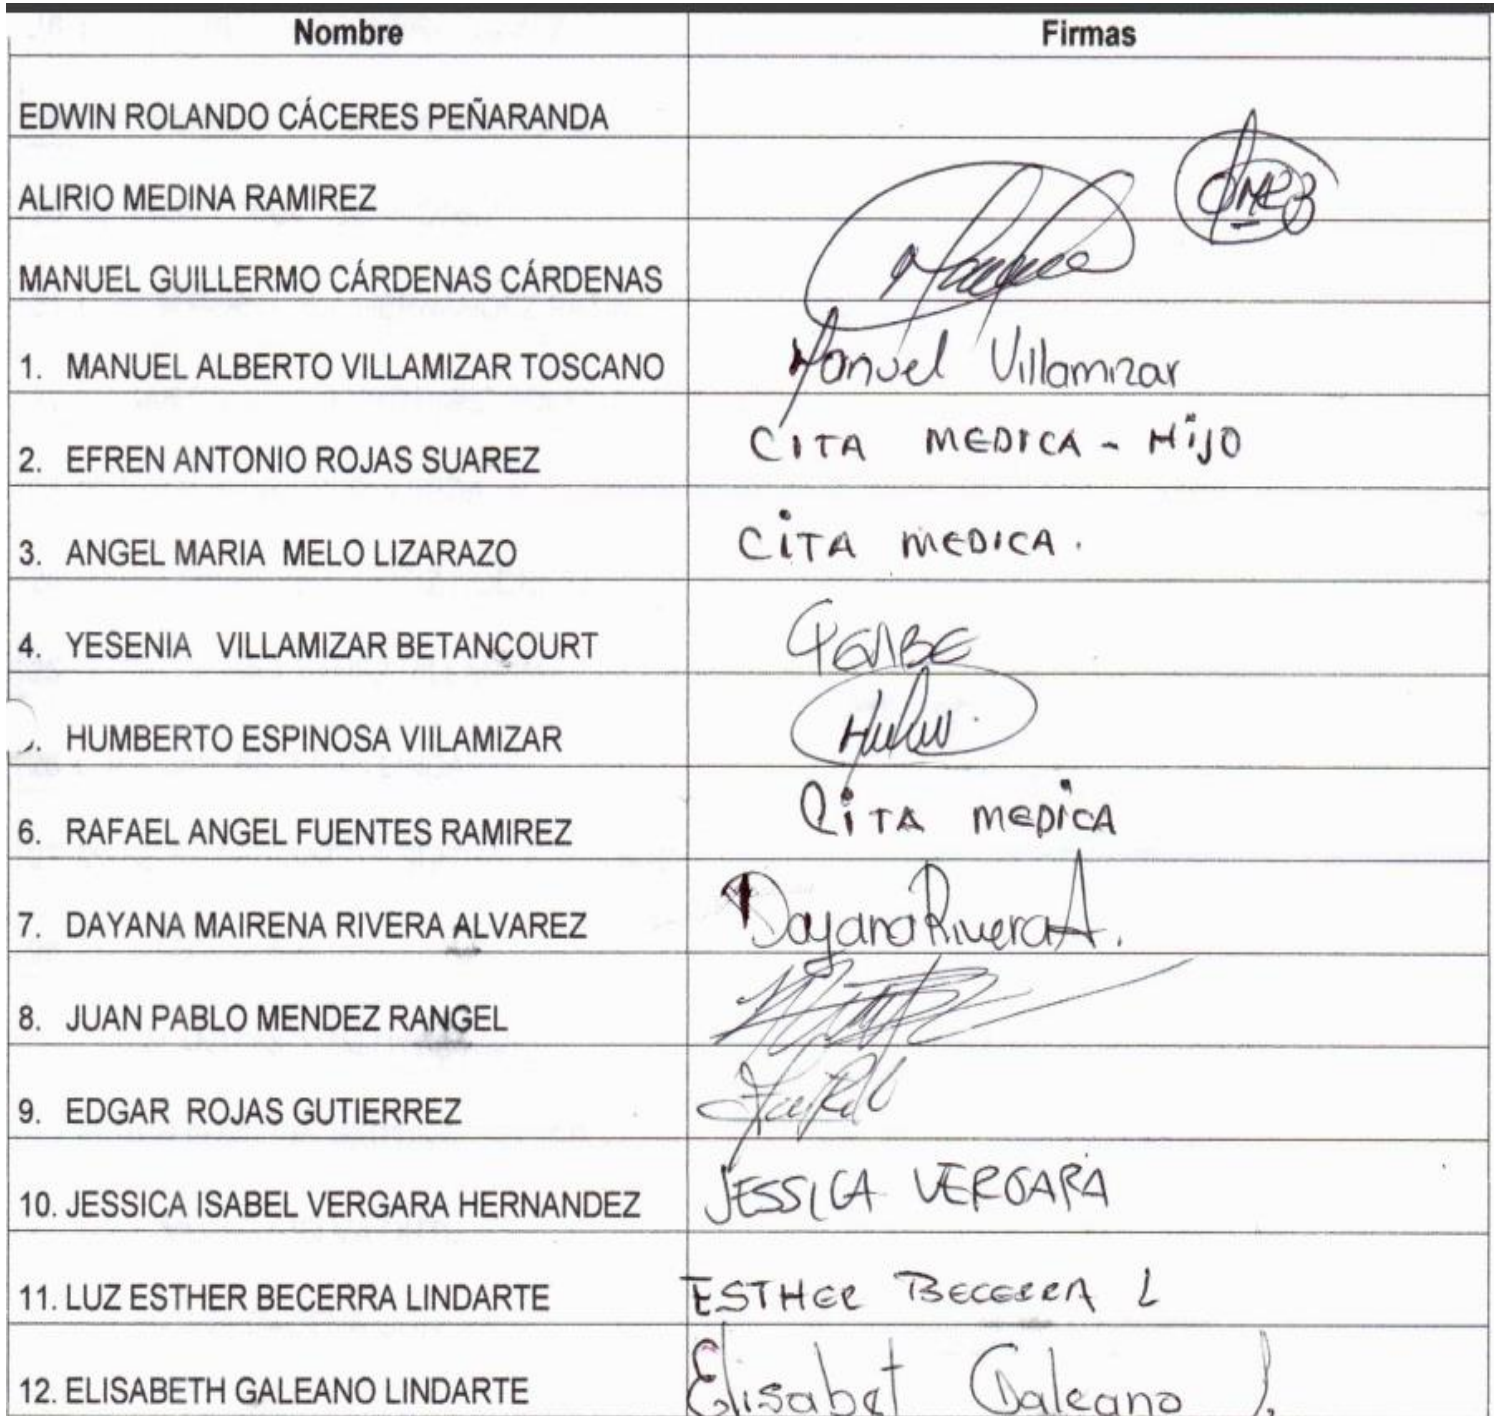 Nombre Firmas
EDWIN ROLANDO CÁCERES PEÑARANDA
ALIRIO MEDINA RAMIREZ
MANUEL GUILLERMO CÁRDENAS CÁRDENAS
1. MANUEL ALBERTO VILLAMIZAR TOSCANO Manuel Villamizar
2. EFREN ANTONIO ROJAS SUAREZ CITA MEDICA - HiJO
3. ANGEL MARIA MELO LIZARAZO CiTA MEDICA.
4. YESENIA VILLAMIZAR BETANCOURT
. HUMBERTO ESPINOSA VIILAMIZAR
6. RAFAEL ANGEL FUENTES RAMIREZ CiTA MEDiCA
7. DAYANA MAIRENA RIVERA ALVAREZ Dayana Rivera A.
8. JUAN PABLO MENDEZ RANGEL
9. EDGAR ROJAS GUTIERREZ
10. JESSICA ISABEL VERGARA HERNANDEZ JESSICA VERGARA
11. LUZ ESTHER BECERRA LINDARTE ESTHER BECERRA L
12. ELISABETH GALEANO LINDARTE Elisabet Galeano L.